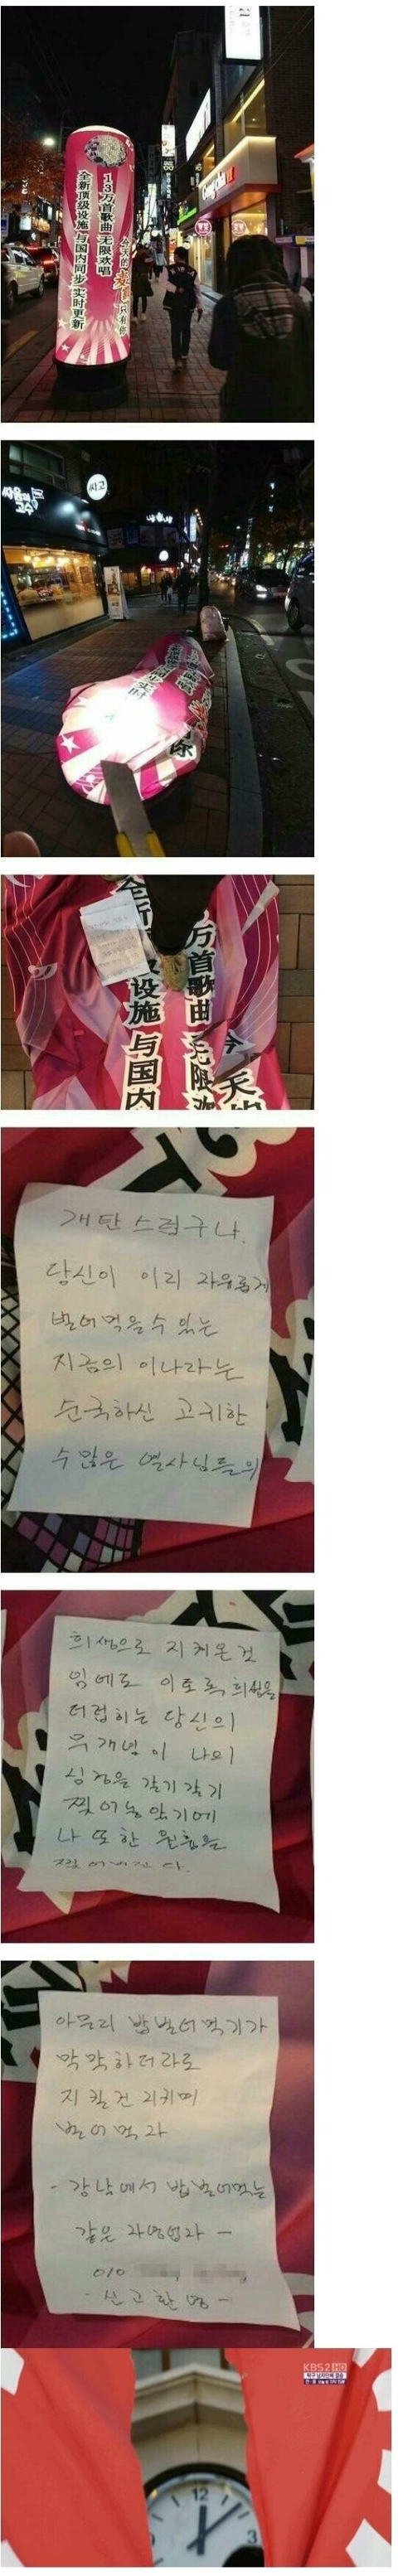 13万首歌曲 无限欢唱
全新顶级设施 与国内同步 实时更新
싸움의
고수
싸고
全新
设施 与国内
万首歌曲 无限欢
今天的
개탄스럽구나.
당신이 이리 자유롭게
벌어먹을수 있는
지금의 이나라는
순국하신 고귀한
수많은 열사님들의
희생으로 지켜온것
임에도 이토록 희생을
더럽히는 당신의
무개념이 나의
심장을 갈기갈기
찢어놓았기에
나 또한 원흉을
찢어버린다.
아무리 밥벌어먹기가
막막하더라도
지킬건 지키며
벌어먹자
- 강남에서 밥벌어먹는
같은 자영업자 -
010
- 신고환영 -
KBS2 HD
12